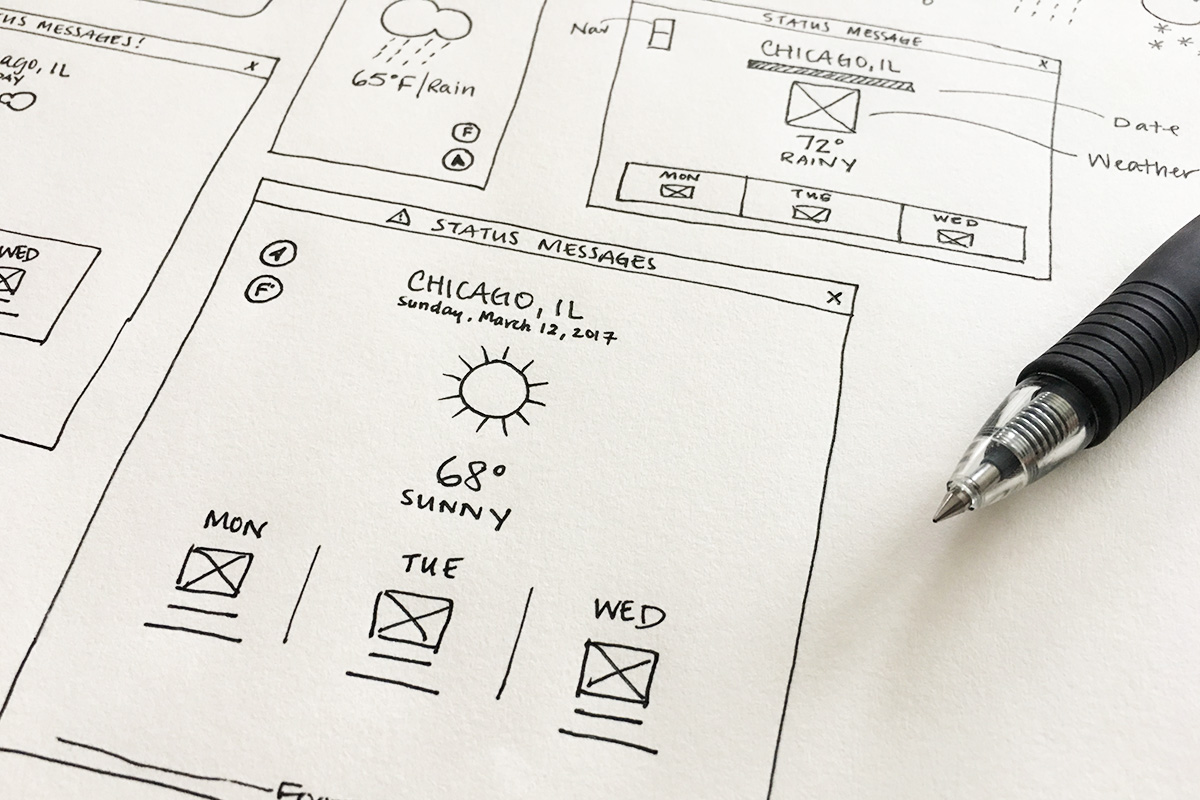 STATUS MESSAGES!
, IL
WED
65°F/Rain
F
A
Nav
STATUS MESSAGE
x
CHICAGO, IL
72°
RAINY
MON
TUE
WED
Date
Weather
STATUS MESSAGES
x
F°
CHICAGO, IL
Sunday, March 12, 2017
68°
SUNNY
MON
TUE
WED